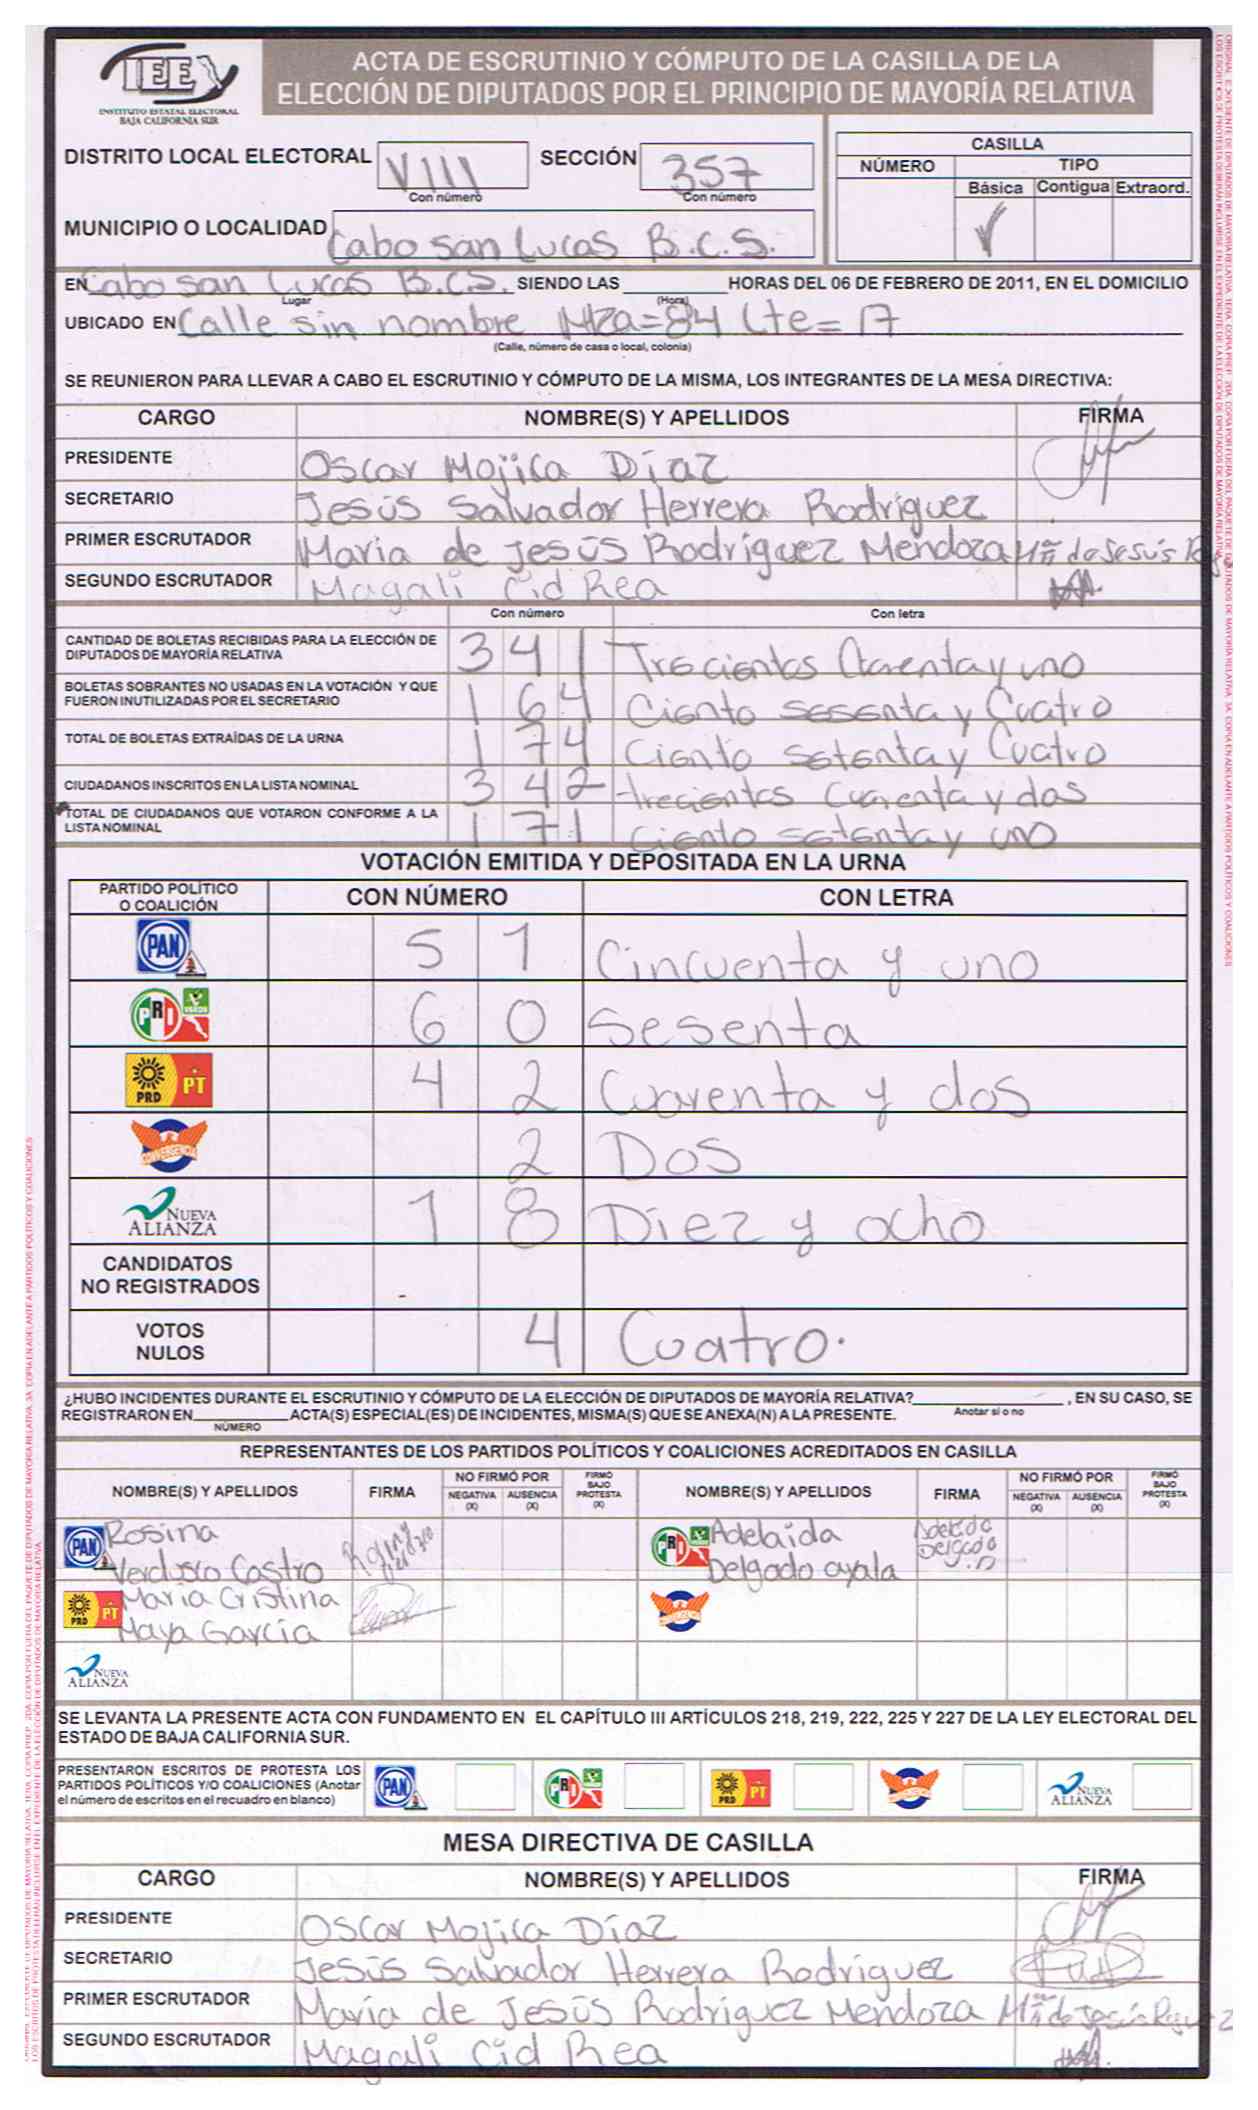 IEE
INSTITUTO ESTATAL ELECTORAL
BAJA CALIFORNIA SUR
ACTA DE ESCRUTINIO Y CÓMPUTO DE LA CASILLA DE LA
ELECCIÓN DE DIPUTADOS POR EL PRINCIPIO DE MAYORÍA RELATIVA
DISTRITO LOCAL ELECTORAL VIII SECCIÓN 357
Con número Con número
CASILLA
NÚMERO TIPO
Básica Contigua Extraord.
✓
MUNICIPIO O LOCALIDAD Cabo san Lucas B.C.S.
EN Cabo san Lucas B.C.S. SIENDO LAS ________ HORAS DEL 06 DE FEBRERO DE 2011, EN EL DOMICILIO
Lugar (Hora)
UBICADO EN Calle sin nombre Mza=84 Lte=17
(Calle, número de casa o local, colonia)
SE REUNIERON PARA LLEVAR A CABO EL ESCRUTINIO Y CÓMPUTO DE LA MISMA, LOS INTEGRANTES DE LA MESA DIRECTIVA:
CARGO NOMBRE(S) Y APELLIDOS FIRMA
PRESIDENTE Oscar Mojica Díaz
SECRETARIO Jesús Salvador Herrera Rodríguez
PRIMER ESCRUTADOR María de Jesús Rodríguez Mendoza
SEGUNDO ESCRUTADOR Magali Cid Rea
Con número Con letra
CANTIDAD DE BOLETAS RECIBIDAS PARA LA ELECCIÓN DE
DIPUTADOS DE MAYORÍA RELATIVA 341 Trecientos Cuarenta y uno
BOLETAS SOBRANTES NO USADAS EN LA VOTACIÓN Y QUE
FUERON INUTILIZADAS POR EL SECRETARIO 164 Ciento sesenta y Cuatro
TOTAL DE BOLETAS EXTRAÍDAS DE LA URNA 174 Ciento setenta y Cuatro
CIUDADANOS INSCRITOS EN LA LISTA NOMINAL 342 trecientos Cuarenta y dos
TOTAL DE CIUDADANOS QUE VOTARON CONFORME A LA
LISTA NOMINAL 171 Ciento setenta y uno
VOTACIÓN EMITIDA Y DEPOSITADA EN LA URNA
PARTIDO POLÍTICO
O COALICIÓN CON NÚMERO CON LETRA
PAN 51 Cincuenta y uno
PRI VERDE 60 Sesenta
PRD PT 42 Cuarenta y dos
CONVERGENCIA 2 Dos
NUEVA ALIANZA 18 Diez y ocho
CANDIDATOS
NO REGISTRADOS -
VOTOS
NULOS 4 Cuatro.
¿HUBO INCIDENTES DURANTE EL ESCRUTINIO Y CÓMPUTO DE LA ELECCIÓN DE DIPUTADOS DE MAYORÍA RELATIVA? ________, EN SU CASO, SE
Anotar si o no
REGISTRARON EN ________ ACTA(S) ESPECIAL(ES) DE INCIDENTES, MISMA(S) QUE SE ANEXA(N) A LA PRESENTE.
NÚMERO
REPRESENTANTES DE LOS PARTIDOS POLÍTICOS Y COALICIONES ACREDITADOS EN CASILLA
NOMBRE(S) Y APELLIDOS FIRMA NO FIRMÓ POR NEGATIVA (X) AUSENCIA (X) FIRMÓ BAJO PROTESTA (X) NOMBRE(S) Y APELLIDOS FIRMA NO FIRMÓ POR NEGATIVA (X) AUSENCIA (X) FIRMÓ BAJO PROTESTA (X)
PAN Rosina PRI VERDE Adelaida
Verdusco Castro Delgado ayala
PRD PT Maria Cristina CONVERGENCIA
Maya García
NUEVA ALIANZA
SE LEVANTA LA PRESENTE ACTA CON FUNDAMENTO EN EL CAPÍTULO III ARTÍCULOS 218, 219, 222, 225 Y 227 DE LA LEY ELECTORAL DEL
ESTADO DE BAJA CALIFORNIA SUR.
PRESENTARON ESCRITOS DE PROTESTA LOS
PARTIDOS POLÍTICOS Y/O COALICIONES (Anotar
el número de escritos en el recuadro en blanco) PAN PRI VERDE PRD PT CONVERGENCIA NUEVA ALIANZA
MESA DIRECTIVA DE CASILLA
CARGO NOMBRE(S) Y APELLIDOS FIRMA
PRESIDENTE Oscar Mojica Díaz
SECRETARIO Jesús Salvador Herrera Rodríguez
PRIMER ESCRUTADOR María de Jesús Rodríguez Mendoza
SEGUNDO ESCRUTADOR Magali Cid Rea